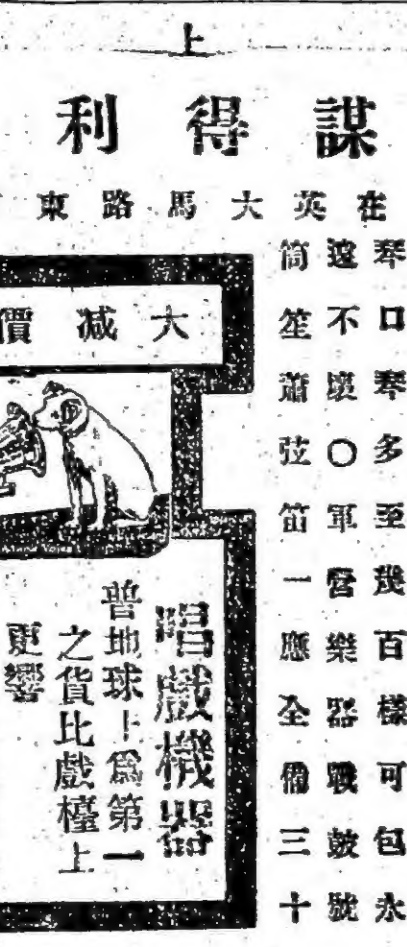 上
謀得利
在英大馬路東
琴口琴多至幾百樣可包永
遠不壞〇軍營樂器戰鼓號
筒笙蕭弦笛一應全備三十
大減價
唱戲機器
普地球上為第一
之貨比戲檯上
更響